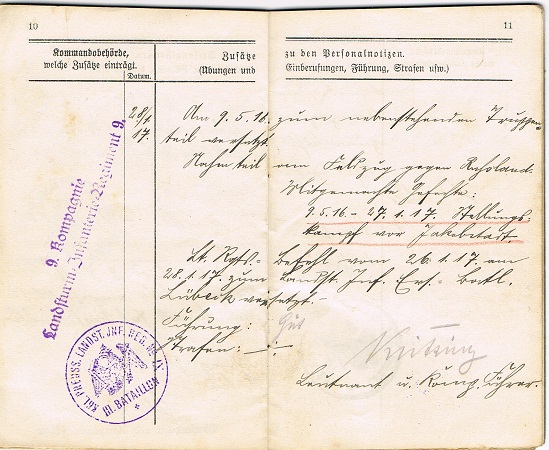 10
11
Kommandobehörde,
welche Zusätze einträgt.
Datum.
Zusätze zu den Personalnotizen.
(Übungen und Einberufungen, Führung, Strafen usw.)
28/1.
17.
Am 9.5.16. zum nebenstehenden Truppen-
teil versetzt.
Nahm teil am Feldzug gegen Rußland.
Mitgemachte Gefechte:
9.5.16 - 27.1.17. Stellungs-
kampf vor Jakobstadt.
Lt. Rgts-Befehl vom 26.1.17 am
28.1.17. zum Landst. Inf. Ers. Batl.
Lübeck versetzt.-
Führung: Gut
Strafen: -:-
Leutnant u. Komp. Führer.
9. Kompagnie
Landsturm-Infanterie-Regiment 9.
KGL. PREUSS. LANDST. JNF. REG.
III. BATAILLON